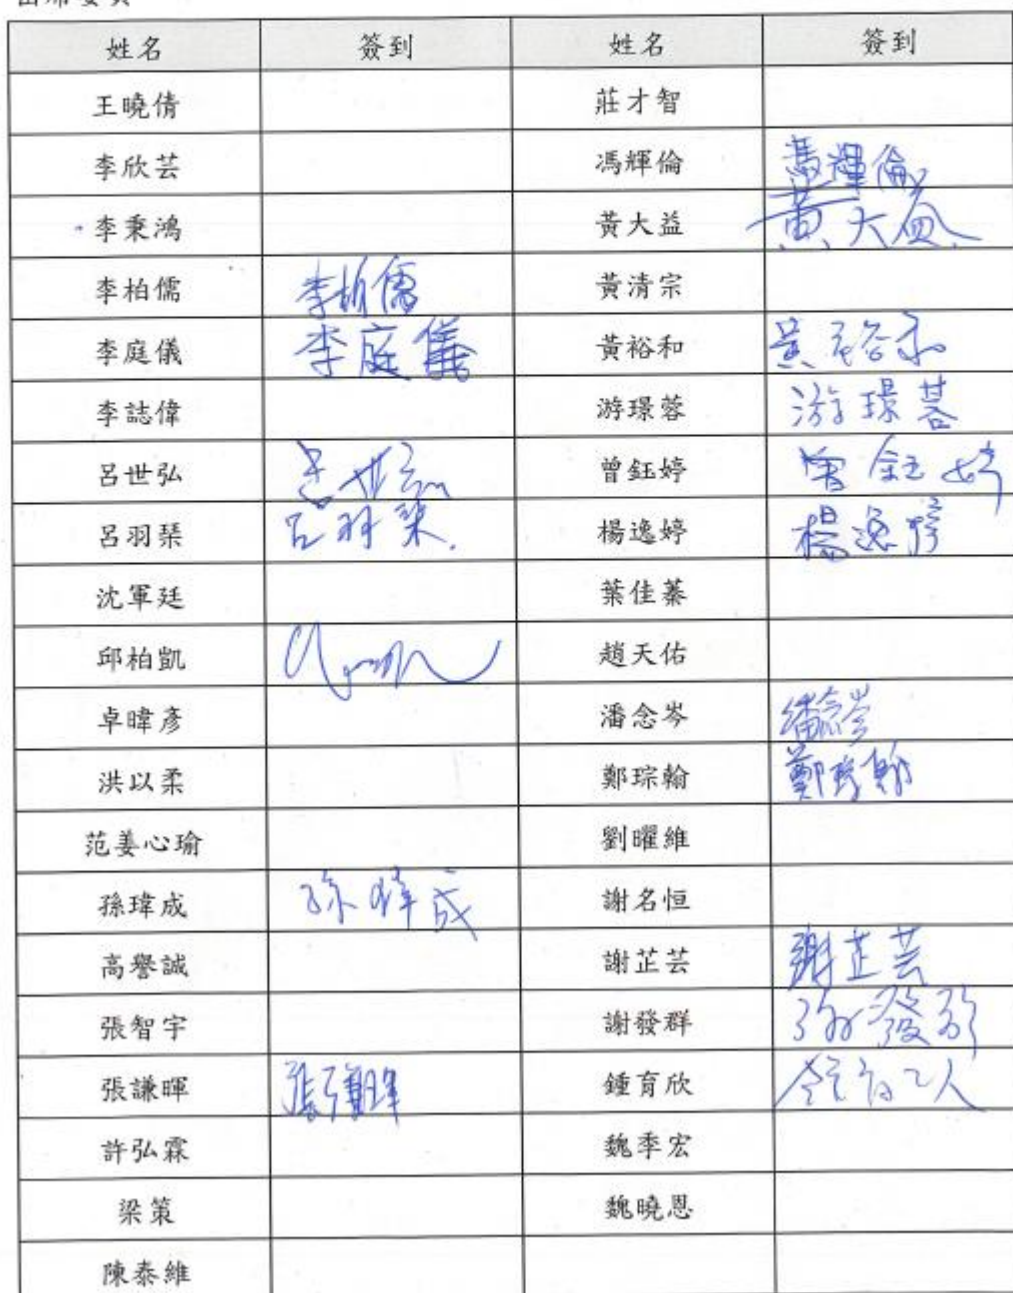 姓名 簽到 姓名 簽到
王曉倩 莊才智
李欣芸 馮輝倫 馮輝倫
李秉鴻 黃大益 黃大益
李柏儒 李柏儒 黃清宗
李庭儀 李庭儀 黃裕和 黃裕和
李誌偉 游璟蓉 游璟蓉
呂世弘 呂世弘 曾鈺婷 曾鈺婷
呂羽琹 呂羽琹 楊逸婷 楊逸婷
沈軍廷 葉佳蓁
邱柏凱 趙天佑
卓暐彥 潘念岑 潘念岑
洪以柔 鄭琮翰 鄭琮翰
范姜心瑜 劉曜維
孫瑋成 孫瑋成 謝名恒
高譽誠 謝芷芸 謝芷芸
張智宇 謝發群
張謙暉 張謙暉 鍾育欣
許弘霖 魏季宏
梁策 魏曉恩
陳泰維